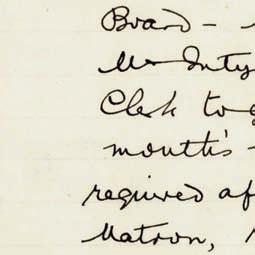 Board –
Mr Duty
Clerk to
month's
required of
Matron,